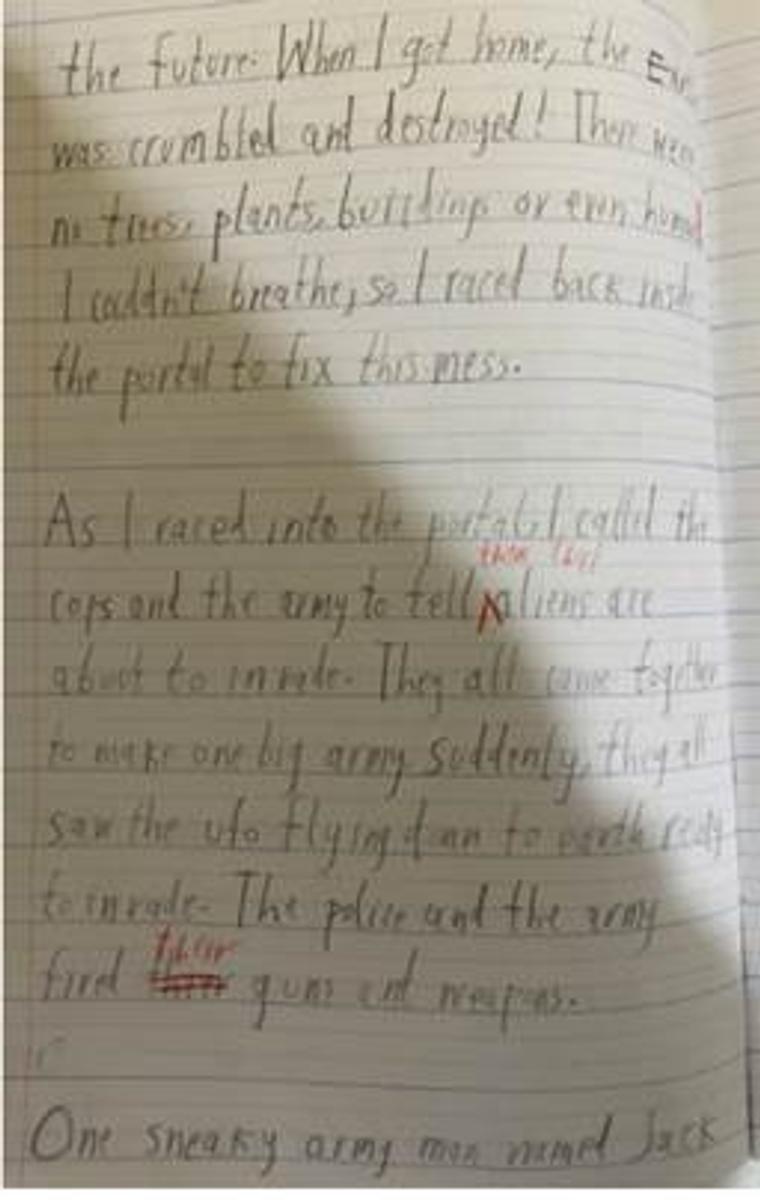 the future. When I got home, the
was crumbled and destroyed! There were
no trees, plants, buildings or even
I couldn't breathe, so I raced back inside
the portal to fix this mess.
As I raced into the portal, I called the
them
cops and the army to tell aliens are
about to invade. They all came together
to make one big army. Suddenly, they all
saw the ufo flying down to earth ready
to invade. The police and the army
their
fired guns and weapons.
One sneaky army man named Jack